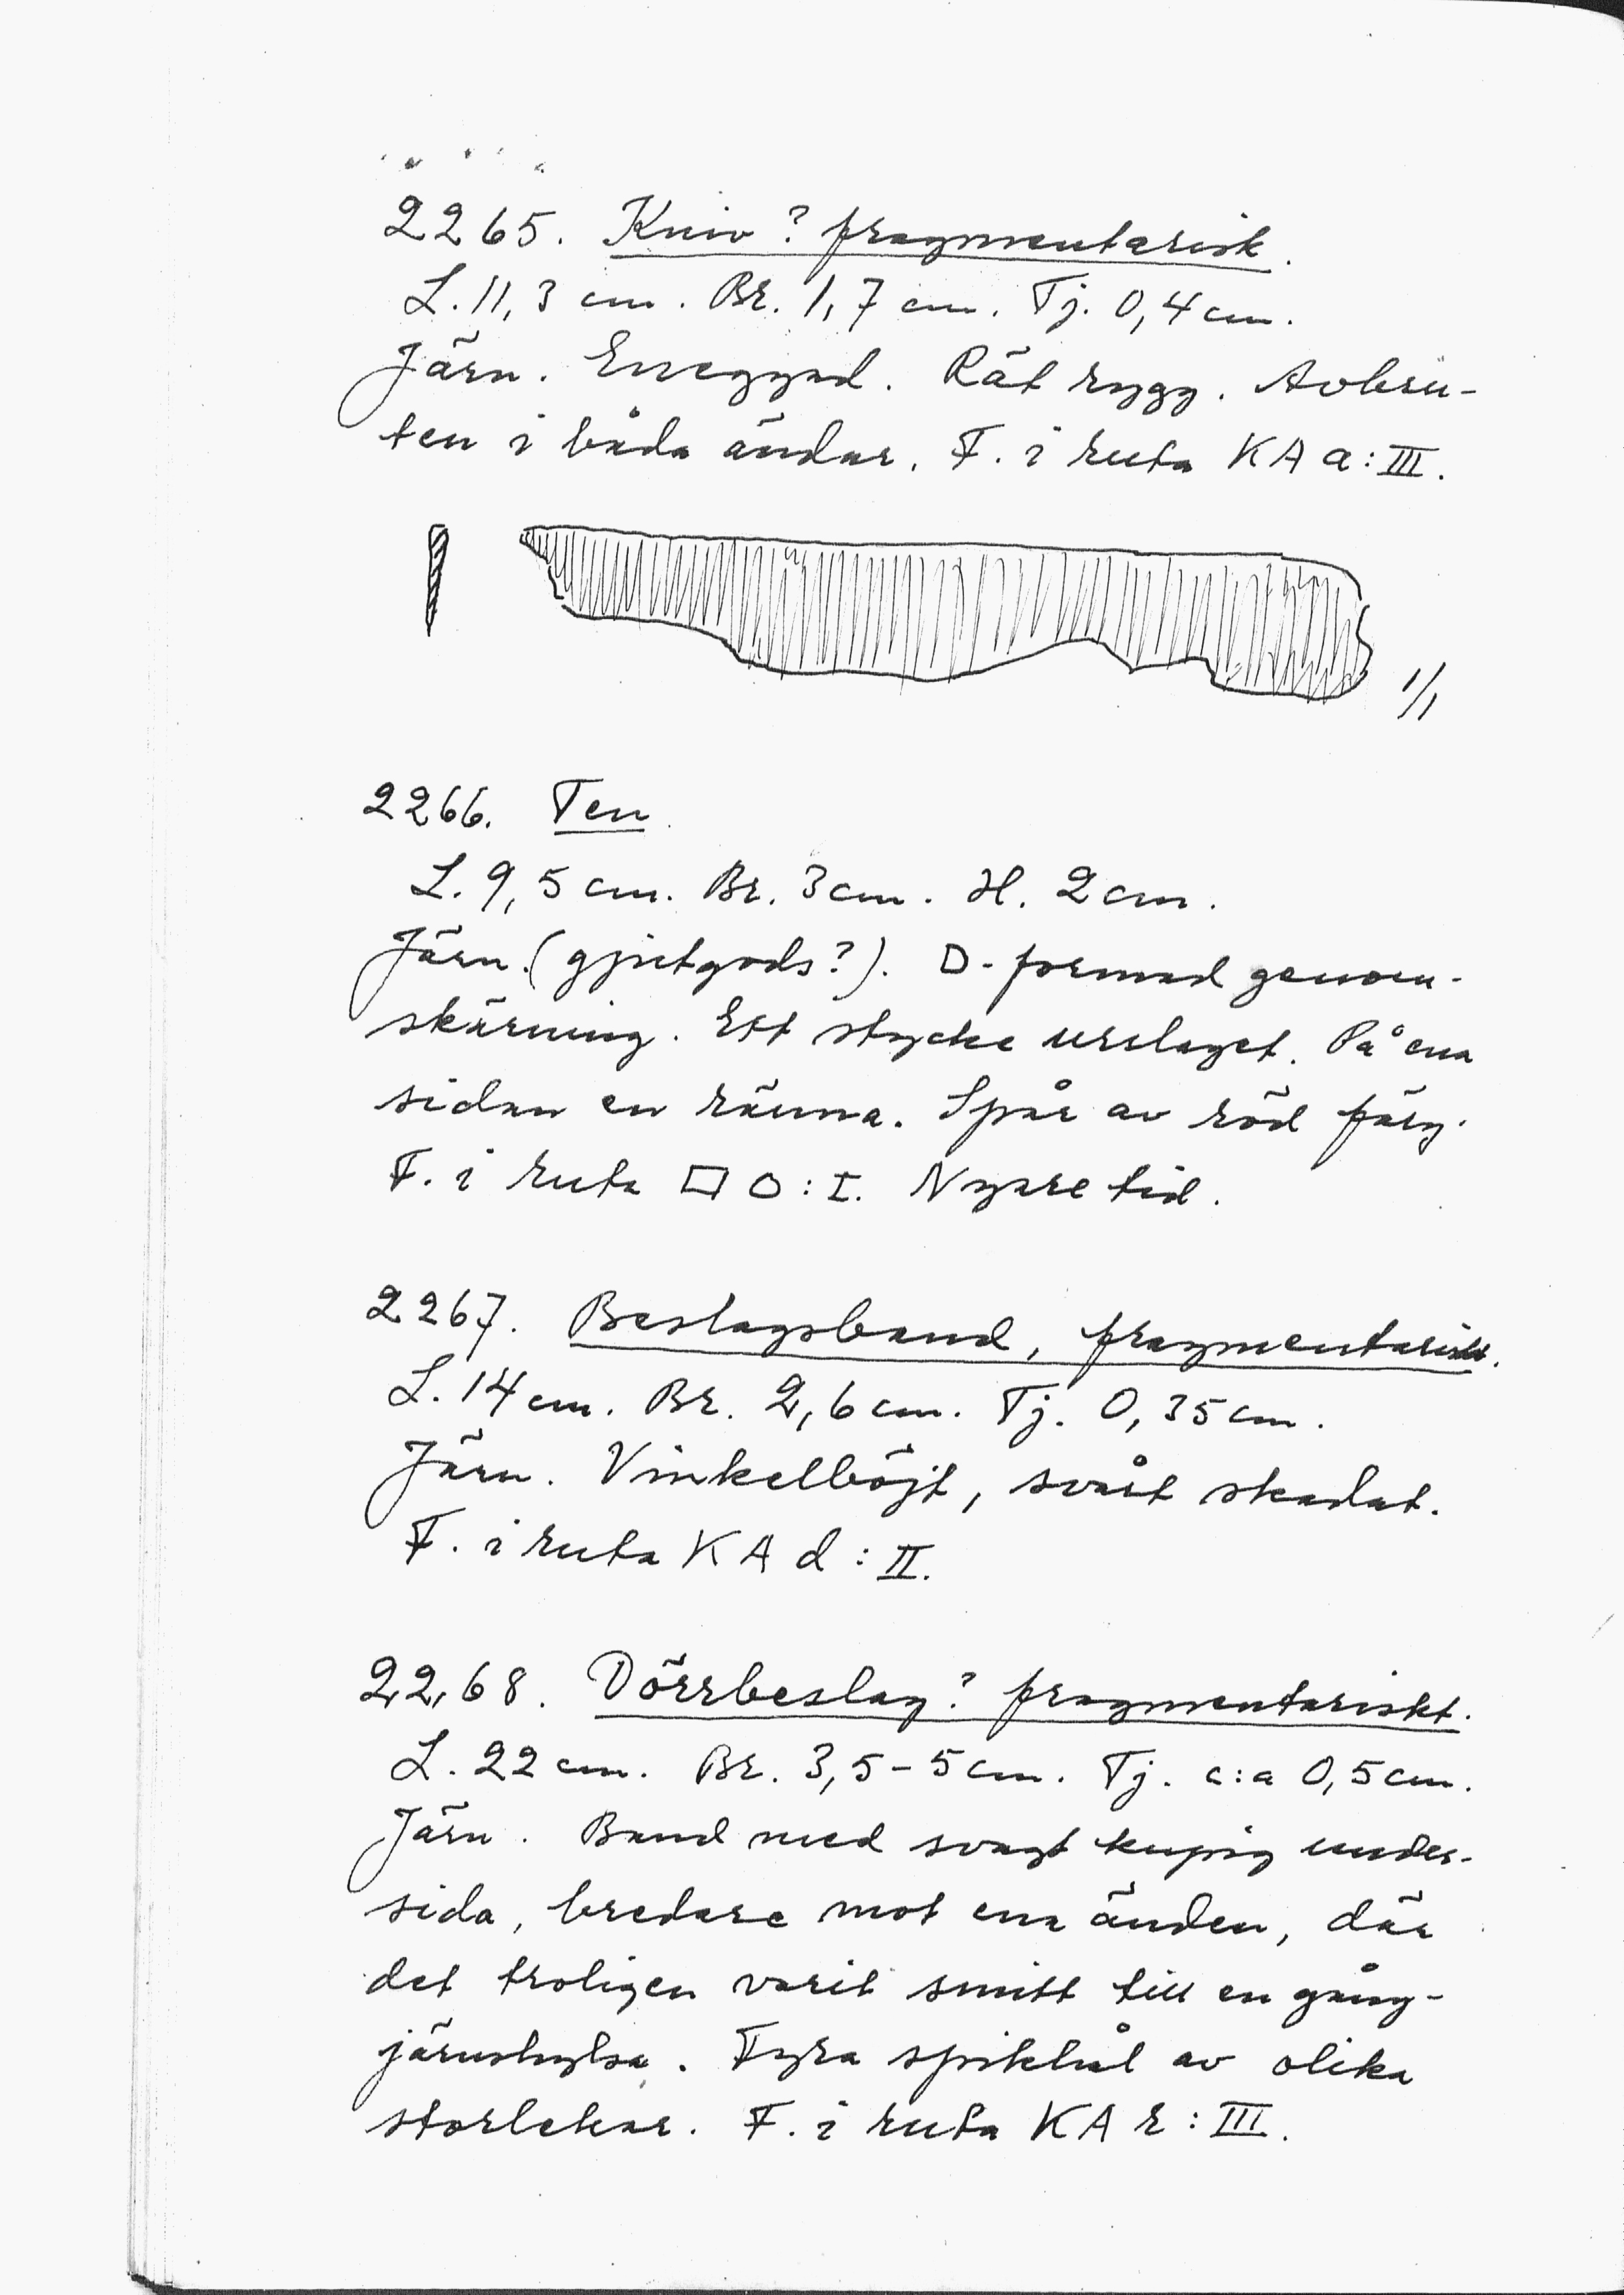 2265. Kniv? fragmentarisk.
L. 11,3 cm. Br. 1,7 cm. Tj. 0,4 cm.
Järn. Eneggad. Rät rygg. Avbru-
ten i båda ändar. F. i ruta KA a:III.
1/1
2266. Ten
L. 9,5 cm. Br. 3 cm. H. 2 cm.
Järn. (gjutgods?). D-formad genom-
skärning. Ett stycke urslaget. På ena
sidan en ränna. Spår av röd färg.
F. i ruta □ O:I. Nyare tid.
2267. Beslagsband, fragmentariskt.
L. 14 cm. Br. 2,6 cm. Tj. 0,35 cm.
Järn. Vinkelböjt, svårt skadat.
F. i ruta KA d:II.
2268. Dörrbeslag? fragmentariskt.
L. 22 cm. Br. 3,5-5 cm. Tj. c:a 0,5 cm.
Järn. Band med svagt kupig under-
sida, bredare mot ena änden, där
det troligen varit smitt till en gång-
järnshylsa. Fyra spikhål av olika
storlekar. F. i ruta KA r:III.